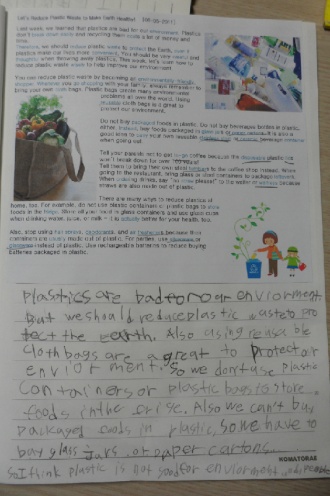 Let's Reduce Plastic Waste to Make Earth Healthy!
Last week, we learned that plastics are bad for our environment. Plastics
don't break down easily and recycling them costs a lot of money and
time.
Therefore, we should reduce plastic waste to protect the Earth, even if
plastics make our lives more convenient. You should be very careful and
thoughtful when throwing away plastics. This week, let's learn how to
reduce plastic waste to help improve our environment.
You can reduce plastic waste by becoming an environmentally friendly
shopper. Whenever you go shopping with your family, always remember to
bring your own cloth bags. Plastic bags create many environmental
problems all over the world. Using
reusable cloth bags is a great way to
protect our environment.
Do not buy packaged foods in plastic. Do not buy beverages in plastic bottles,
either. Instead, buy foods packaged in glass jars or paper cartons. It is also a
good idea to
when going out.
Tell your parents not to get to-go coffee because the disposable plastic cups
won't break down for over
Tell them to bring their own steel tumblers to the coffee shop instead. When
going to the restaurant, bring glass or steel containers to package leftovers.
When ordering drinks, say "No straw please!" to the waiter or waitress because
straws are also made out of plastic.
There are many ways to reduce plastics at
home, too. For example, do not use plastic containers or plastic bags to store
foods in the fridge. Store all your food in glass containers and use glass cups
when drinking water, juice, or milk - it is actually better for your health, too.
Also, stop using
containers are usually made out of plastic. For parties, use
instead of plastic. Use rechargeable batteries to reduce buying
batteries packaged in plastic.
plastics are bad for our enviorment
But we should reduce plastic waste to pro
tect the earth. Also using reusable
cloth bags are a great to protect our
enviorment. So we don't use plastic
Containers or plastic bags to store
foods in the frige. Also we can't buy
packaged foods in plastic, So we have to
buy glass jars or paper cartons.
KOMATORAE
So I think plastic is not good for enviorment